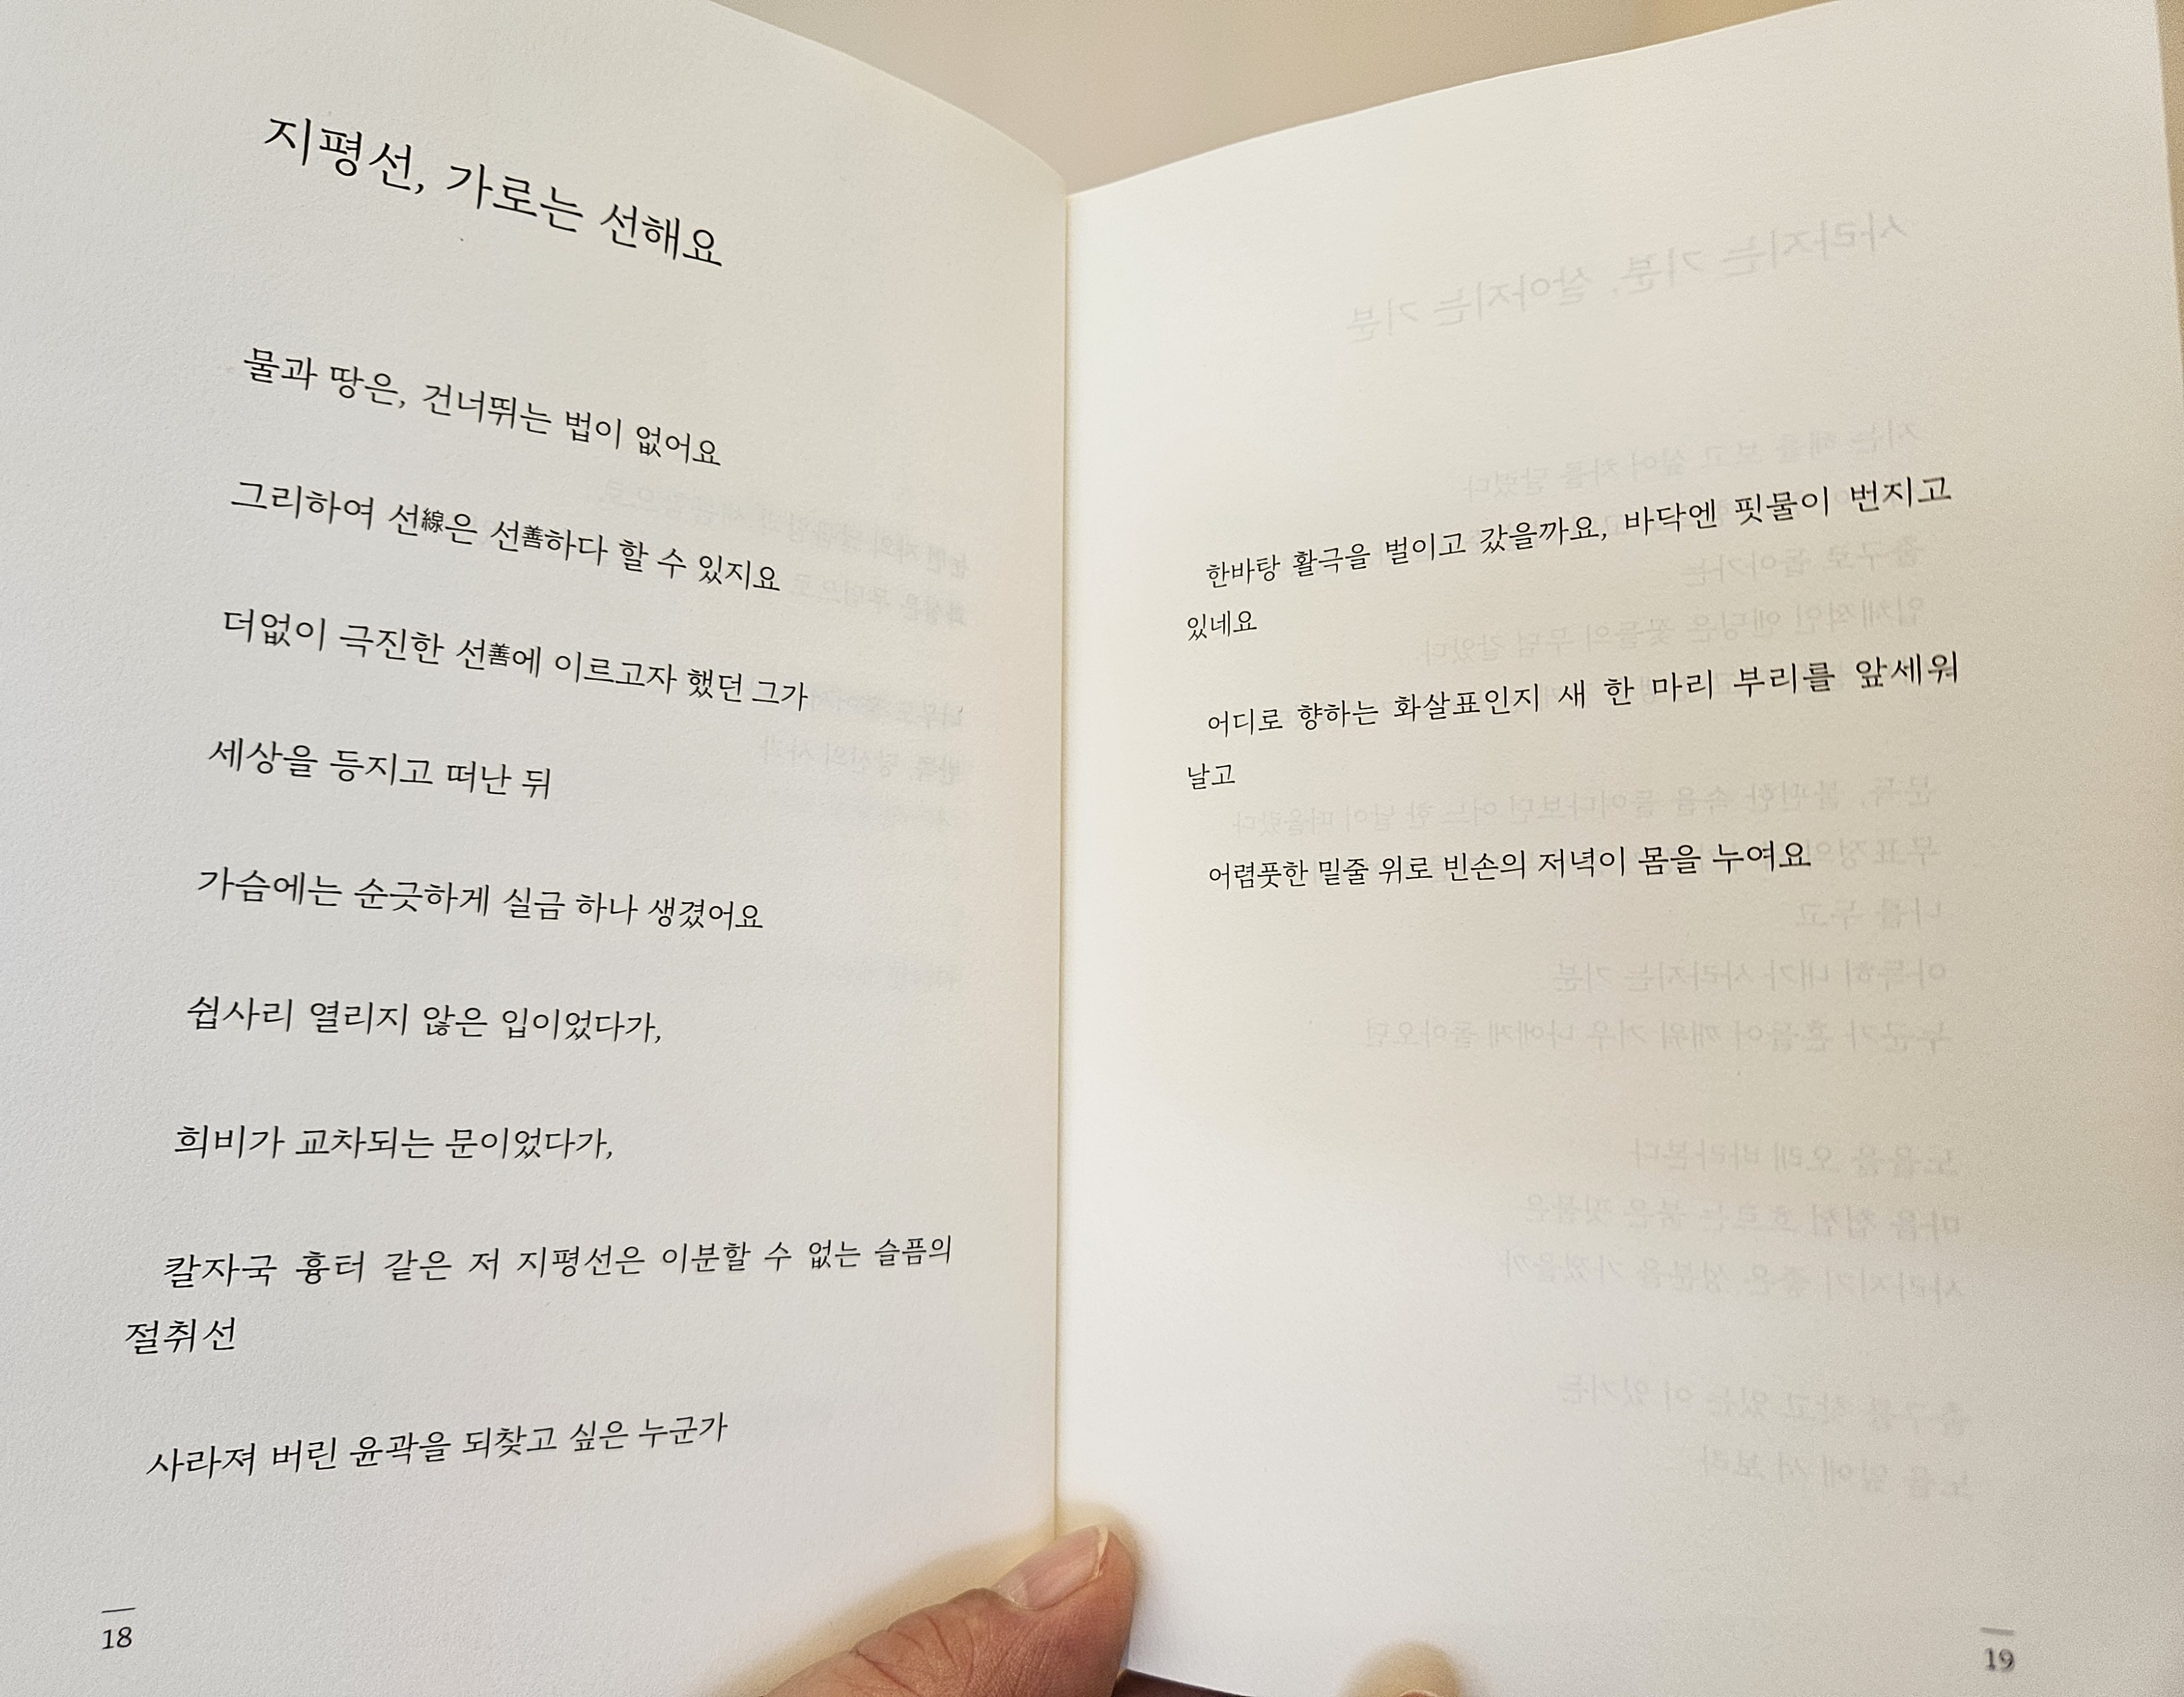 지평선, 가로는 선해요
물과 땅은, 건너뛰는 법이 없어요
그리하여 선線은 선善하다 할 수 있지요
더없이 극진한 선善에 이르고자 했던 그가
세상을 등지고 떠난 뒤
가슴에는 순긋하게 실금 하나 생겼어요
쉽사리 열리지 않은 입이었다가,
희비가 교차되는 문이었다가,
칼자국 흉터 같은 저 지평선은 이분할 수 없는 슬픔의
절취선
사라져 버린 윤곽을 되찾고 싶은 누군가
18
한바탕 활극을 벌이고 갔을까요, 바닥엔 핏물이 번지고
있네요
어디로 향하는 화살표인지 새 한 마리 부리를 앞세워
날고
어렴풋한 밑줄 위로 빈손의 저녁이 몸을 누여요
19